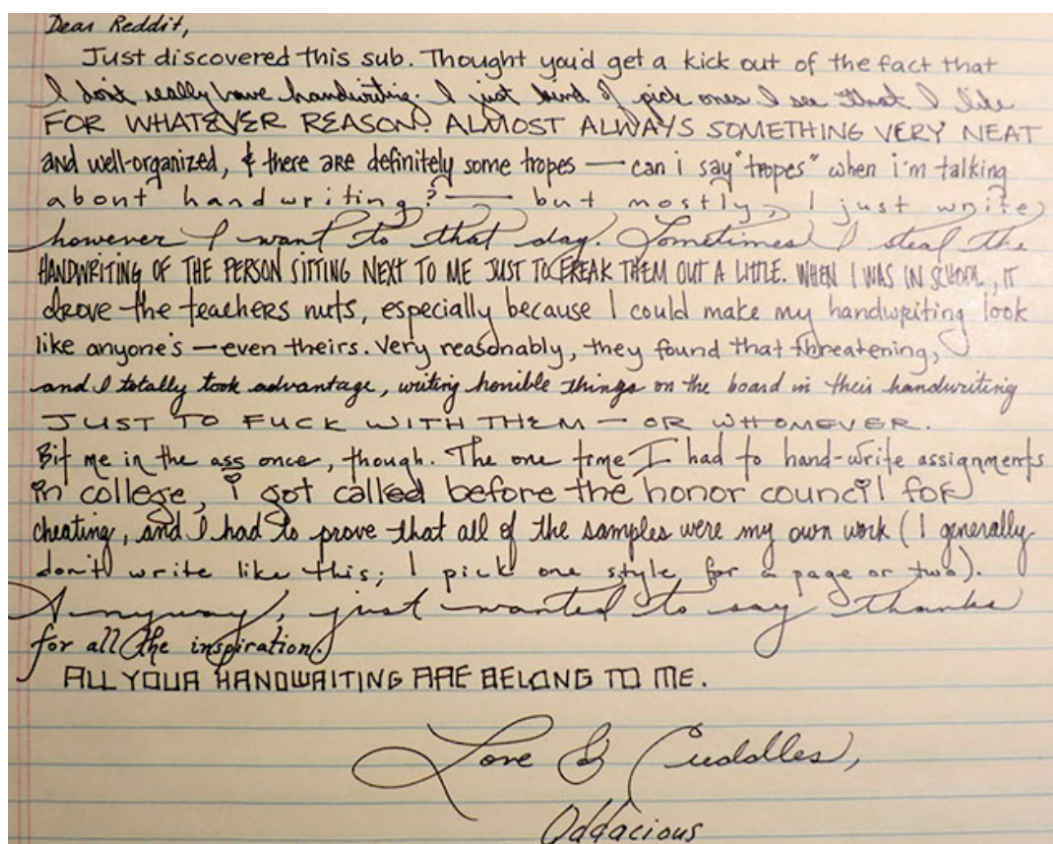 Dear Reddit,
Just discovered this sub. Thought you'd get a kick out of the fact that
I don't really have handwriting. I just kind of pick ones I see that I like
FOR WHATEVER REASON. ALMOST ALWAYS SOMETHING VERY NEAT
and well-organized, & there are definitely some tropes — can i say "tropes" when i'm talking
about handwriting? — but mostly, I just write
however I want to that day. Sometimes I steal the
HANDWRITING OF THE PERSON SITTING NEXT TO ME JUST TO FREAK THEM OUT A LITTLE. WHEN I WAS IN SCHOOL, IT
drove the teachers nuts, especially because I could make my handwriting look
like anyone's — even theirs. Very reasonably, they found that threatening,
and I totally took advantage, writing horrible things on the board in their handwriting
JUST TO FUCK WITH THEM — OR WHOMEVER.
Bit me in the ass once, though. The one time I had to hand-write assignments
in college, i got called before the honor council for
cheating, and I had to prove that all of the samples were my own work (I generally
don't write like this; I pick one style for a page or two).
Anyway, just wanted to say thanks
for all the inspiration.
ALL YOUR HANDWRITING ARE BELONG TO ME.
Love & Cuddles,
Oddacious